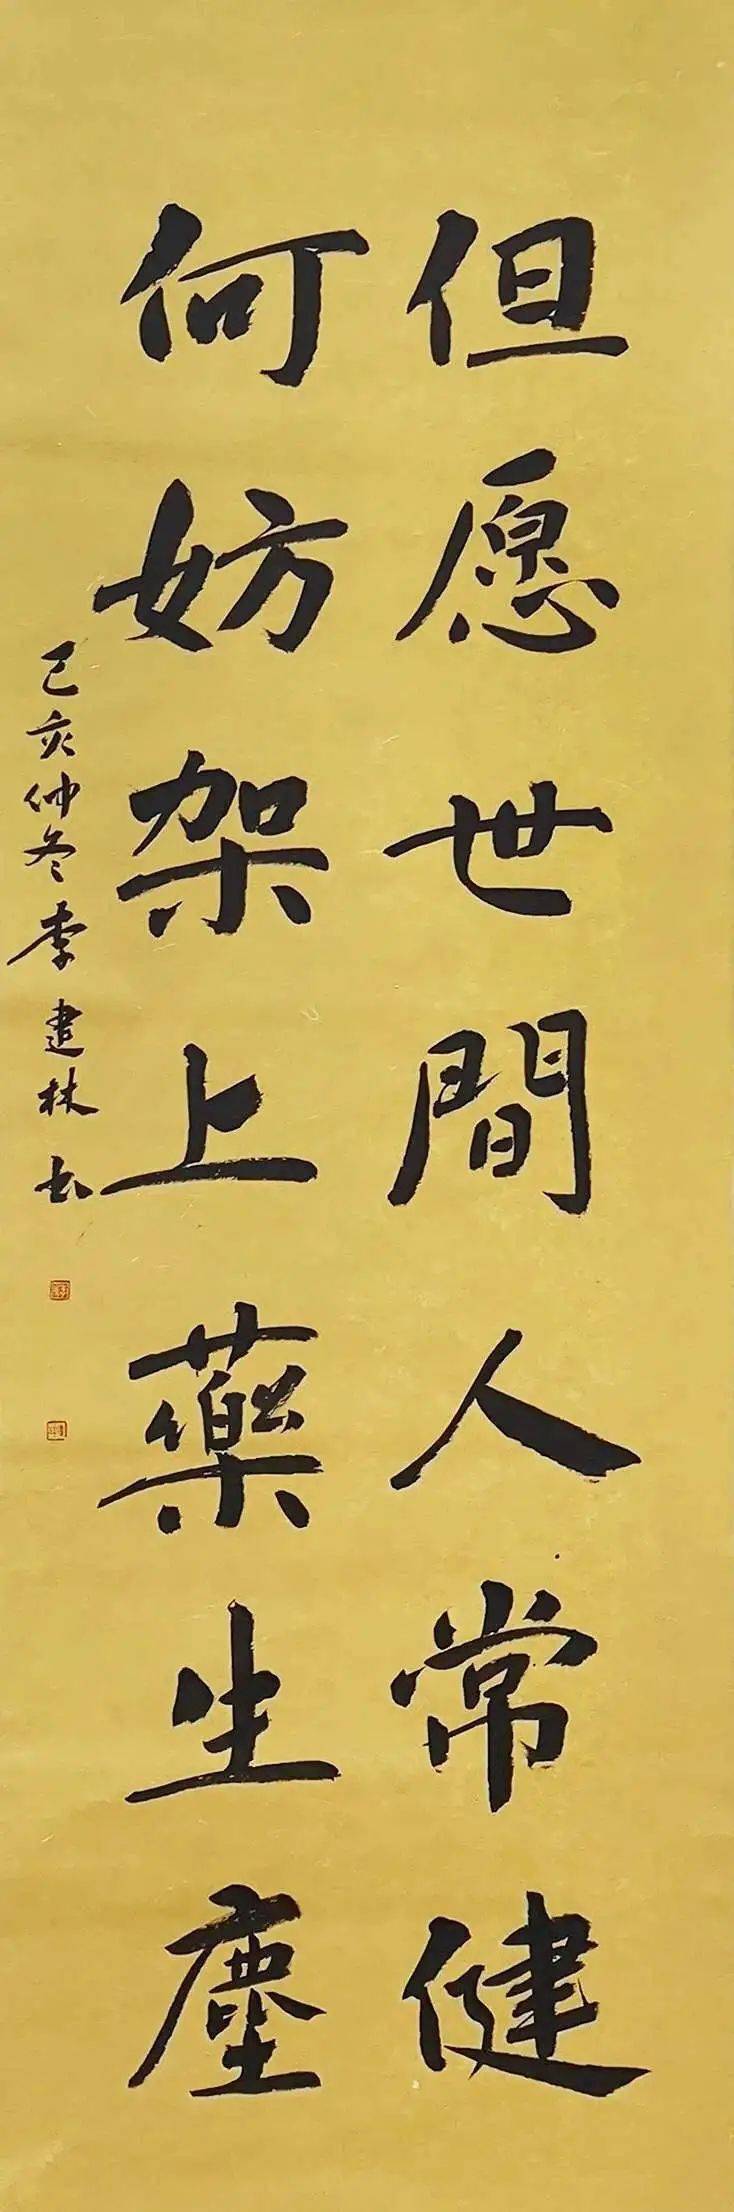 但愿世間人常健
何妨架上藥生塵
己亥仲冬李建林书